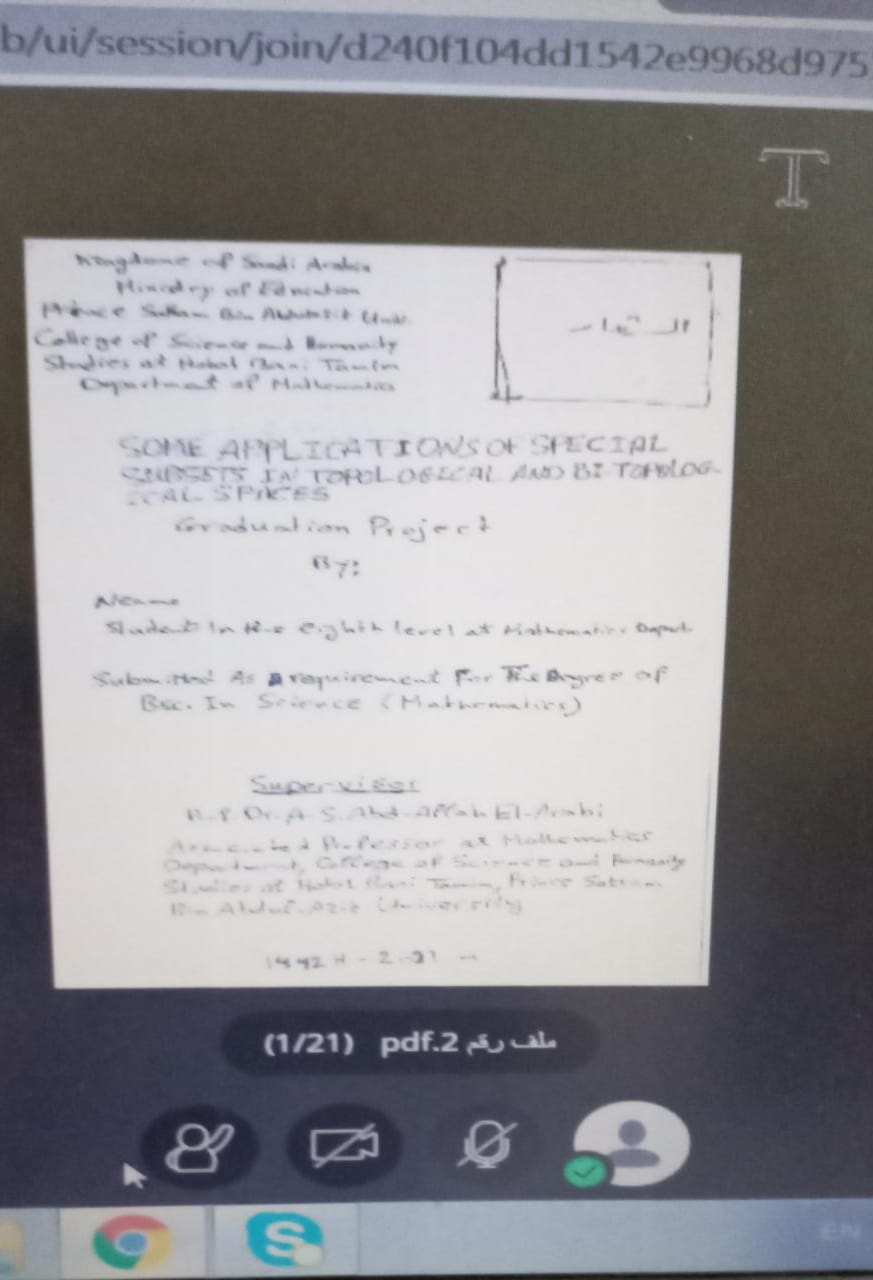 b/ui/session/join/d240f104dd1542e9968d975
T
Kingdome of Saudi Arabia
Ministry of Education
Prince Sattam Bin Abdulaziz Univ.
College of Science and Humanity
Studies at Hotat Bani Tamim
Department of Mathematics
الشعار
SOME APPLICATIONS OF SPECIAL
SUBSETS IN TOPOLOGICAL AND BI-TOPOLOG-
ICAL SPACES
Graduation Project
By:
Name
Student In the eighth level at Mathematics Depart.
Submitted As a requirement For The Degree of
Bsc. In Science (Mathematics)
Supervisor
Dr. A. S. Abd-Allah El-Arabi
Associated Professor at Mathematics
Department, College of Science and Humanity
Studies at Hotat Bani Tamim, Prince Sattam
Bin Abdul-Aziz University
1442 H -
ملف رقم 2.pdf (1/21)
S
EN